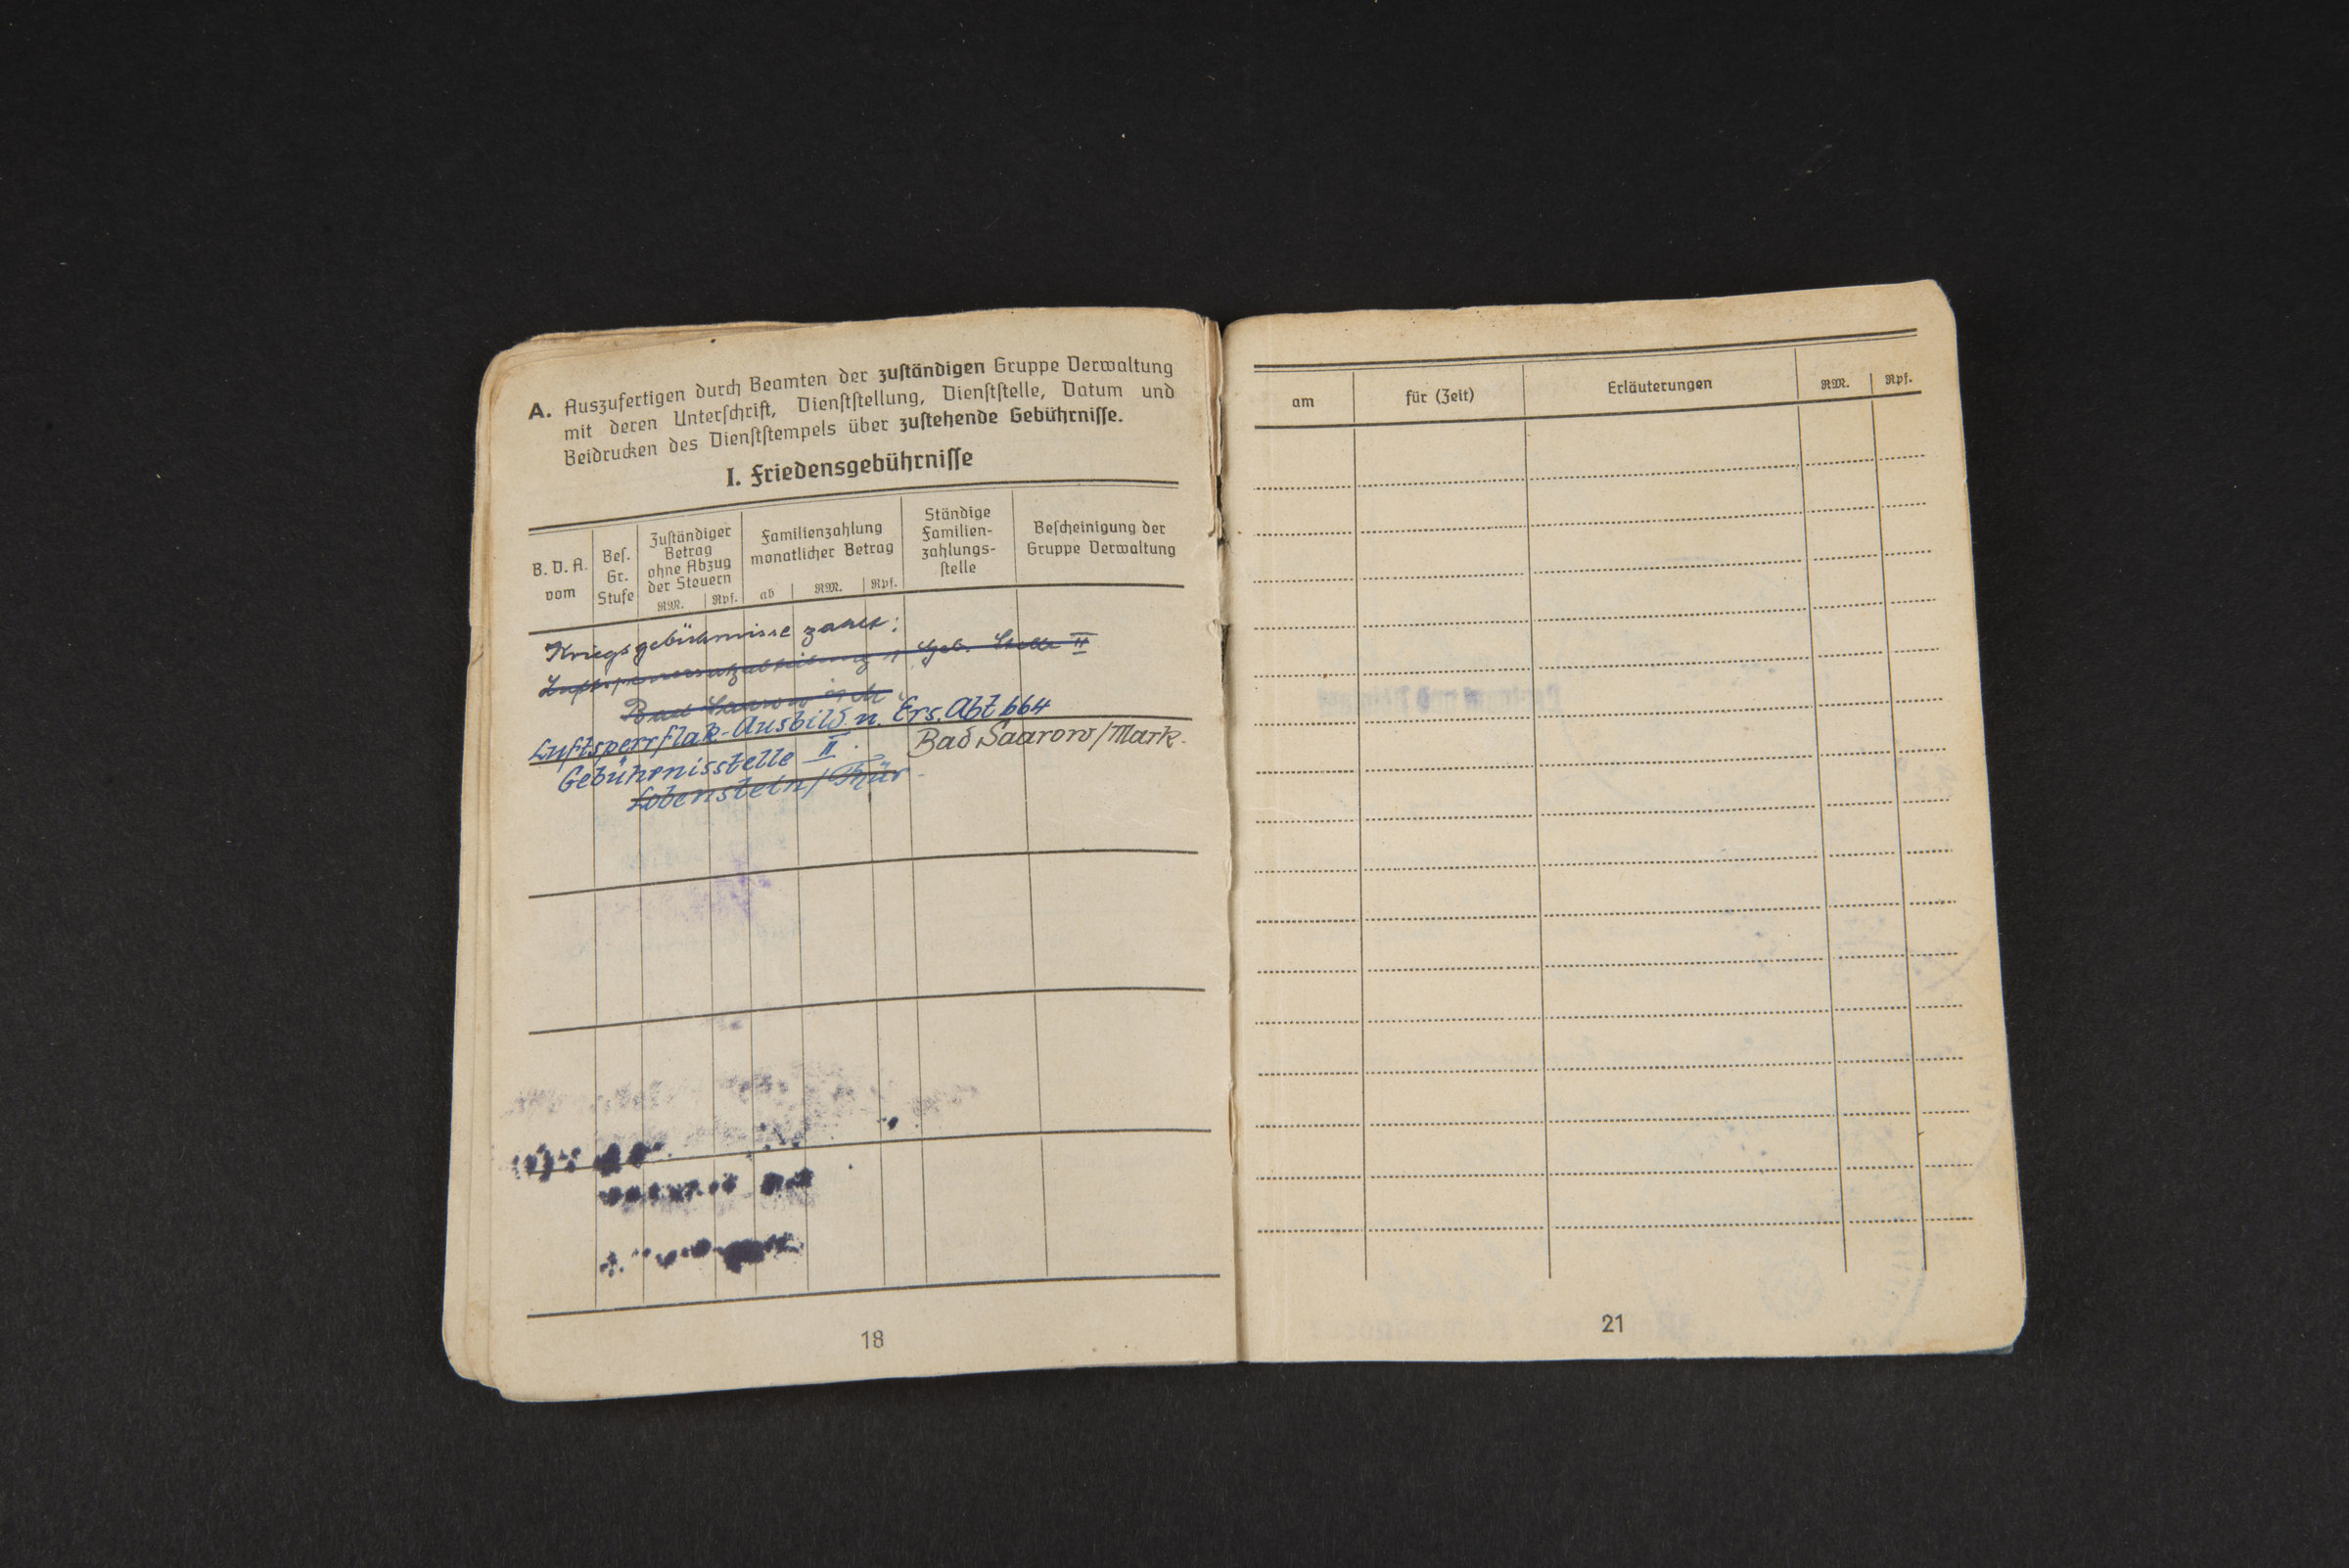 A. Auszufertigen durch Beamten der zuständigen Gruppe Verwaltung
mit deren Unterschrift, Dienststellung, Dienststelle, Datum und
Beidrucken des Dienststempels über zustehende Gebührnisse.
I. Friedensgebührnisse
B. D. A. vom
Bes. Gr. Stufe
Zuständiger Betrag ohne Abzug der Steuern
RM. Rpf.
Familienzahlung monatlicher Betrag
ab RM. Rpf.
Ständige Familien-zahlungs-stelle
Bescheinigung der Gruppe Verwaltung
Kriegsgebührnisse zahlt:
Luftsperrersatzabteilung 1 Geb. Stelle II
Bad Saarow
Luftsperrflak-Ausbild. u. Ers. Abt 664
Gebührnisstelle II.
Bad Saarow/Mark.
Lobenstein/Thür.
18
am für (Zeit) Erläuterungen RM. Rpf.
21